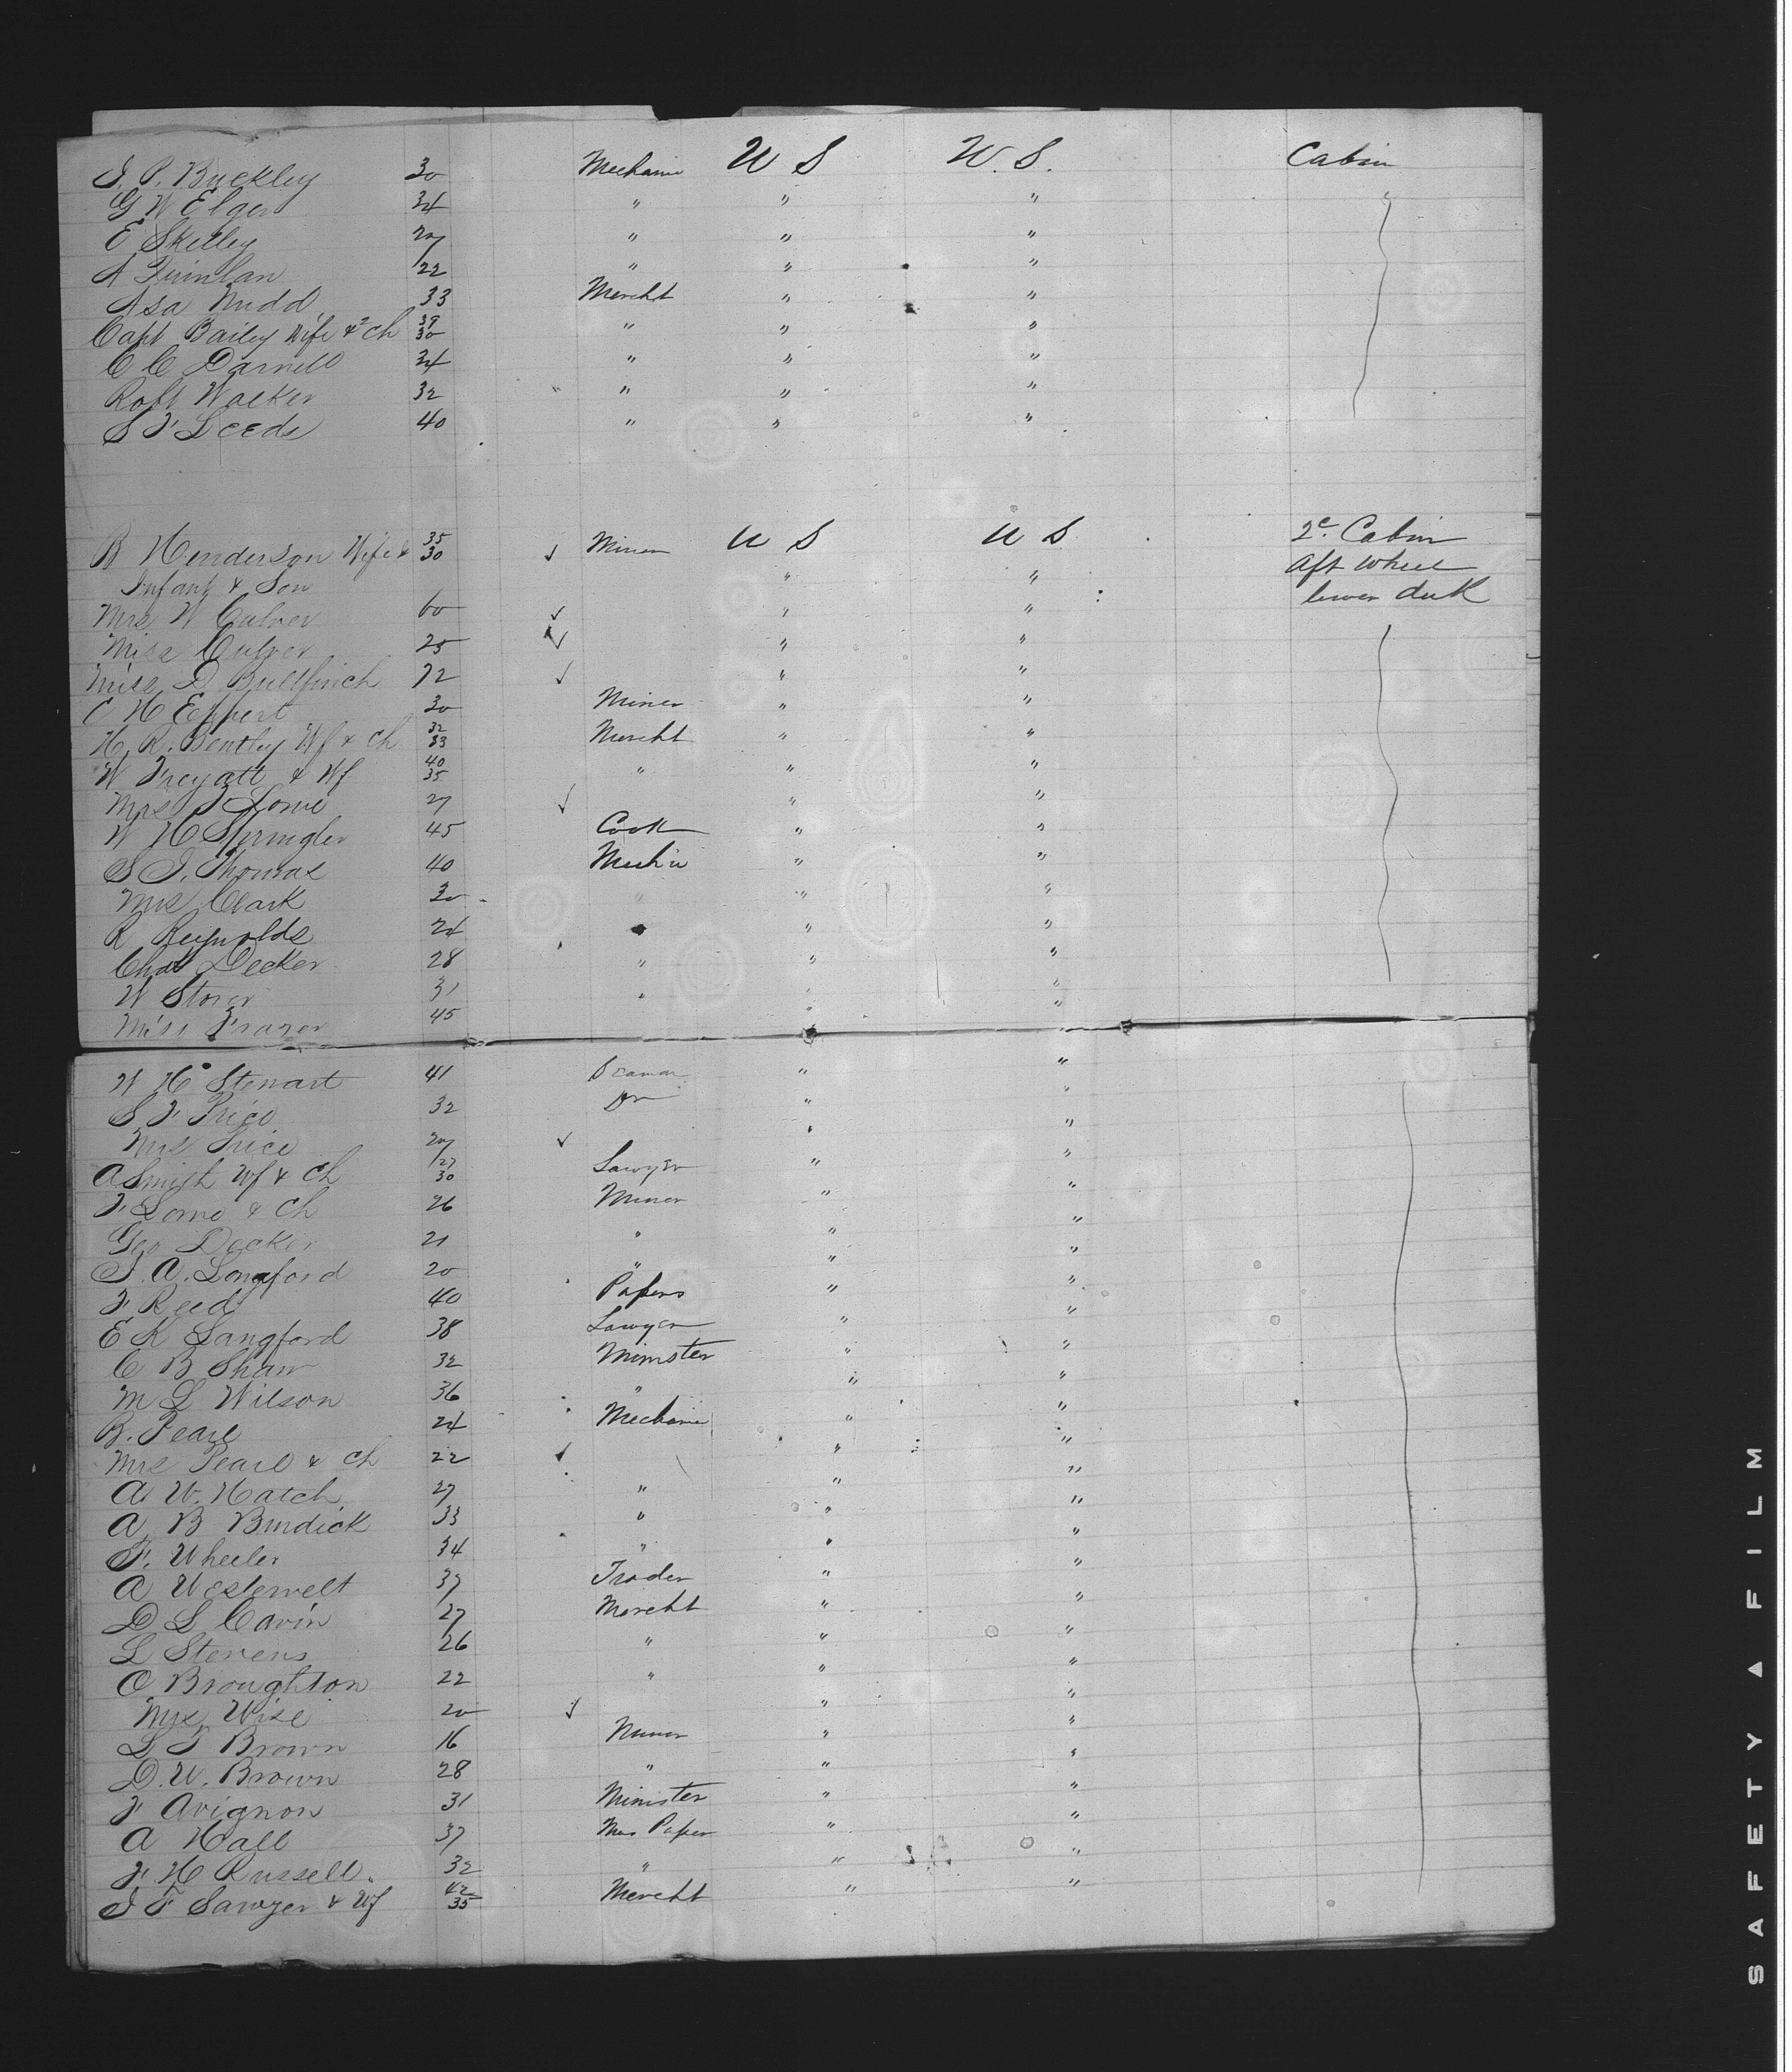 J. P. Buckley 30 Mechanic U S W. S. Cabin
G W Elger 34 " " "
E Skelley 27 " " "
A Quinlan 22 " " "
Asa Nudd 33 Mercht " "
Capt Bailey Wife & 2 ch 39 30 " " "
C C Darnell 34 " " "
Robt Walker 32 " " "
S F Leeds 40 " " "
B Henderson Wife & 35 30 ✓ Miner U S U S 2e Cabin
Infant & Son " " Aft Wheel
Mrs W Culver 60 ✓ " " lower deck
Miss Culver 25 ✓ " "
Miss D Bullfinch 72 ✓ " "
C H Eppert 30 Miner " "
H. R. Bentley Wf & Ch 32 33 Mercht " "
W Treyatt & Wf 40 35 " " "
Mrs Lowe 27 ✓ " "
W H Springler 45 Cook " "
S J. Thomas 40 Mechic " "
Mrs Clark 30 " " "
R Reynolds 24 " " "
Chas Decker 28 " " "
W Storer 31 " " "
Miss Frazer 45 " "
W H Stewart 41 Seaman " "
S F Price 32 Dr " "
Mrs Price 27 ✓ " "
A Smith Wf & Ch 27 30 Lawyer " "
F Lowe & Ch 26 Miner " "
Geo Decker 21 " " "
J. A. Longford 20 " " "
F Reed 40 Papers " "
E K Langford 38 Lawyer " "
C B Shaw 32 Minister " "
M L Wilson 36 " " "
B. Pearl 24 Mechanic " "
Mrs Pearl & Ch 22 ✓ " "
A W. Hatch 27 " " "
A B Burdick 33 " " "
F. Wheeler 34 " " "
A Westervelt 37 Trader " "
D L Cavin 27 Mercht " "
L Stevens 26 " " "
O Broughton 22 " " "
Mrs Wise 20 ✓ " "
L T Brown 16 Miner " "
D. W. Brown 28 " " "
F Avignon 31 Minister " "
A Hall 37 Paper " "
F. H Russell. 32 " " "
J F Sawyer & Wf 42 35 Mercht " "
SAFETY ▲ FILM